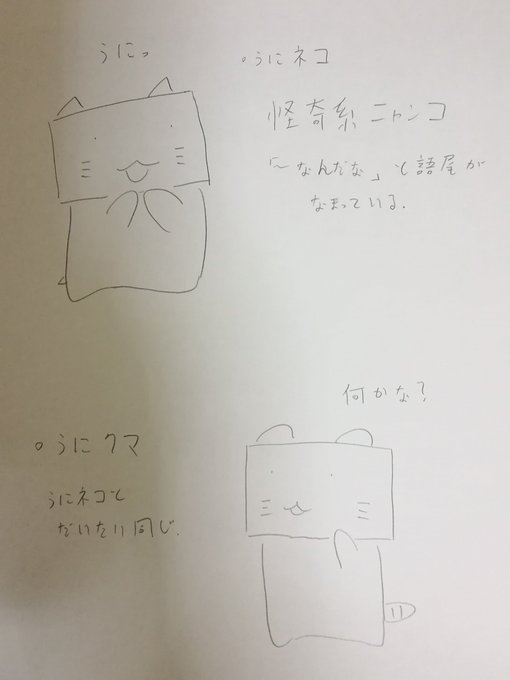 うにっ
○うにネコ
怪奇系ニャンコ
「～なんだな」と語尾が
なまっている.
何かな?
○うにクマ
うにネコと
だいたい同じ.